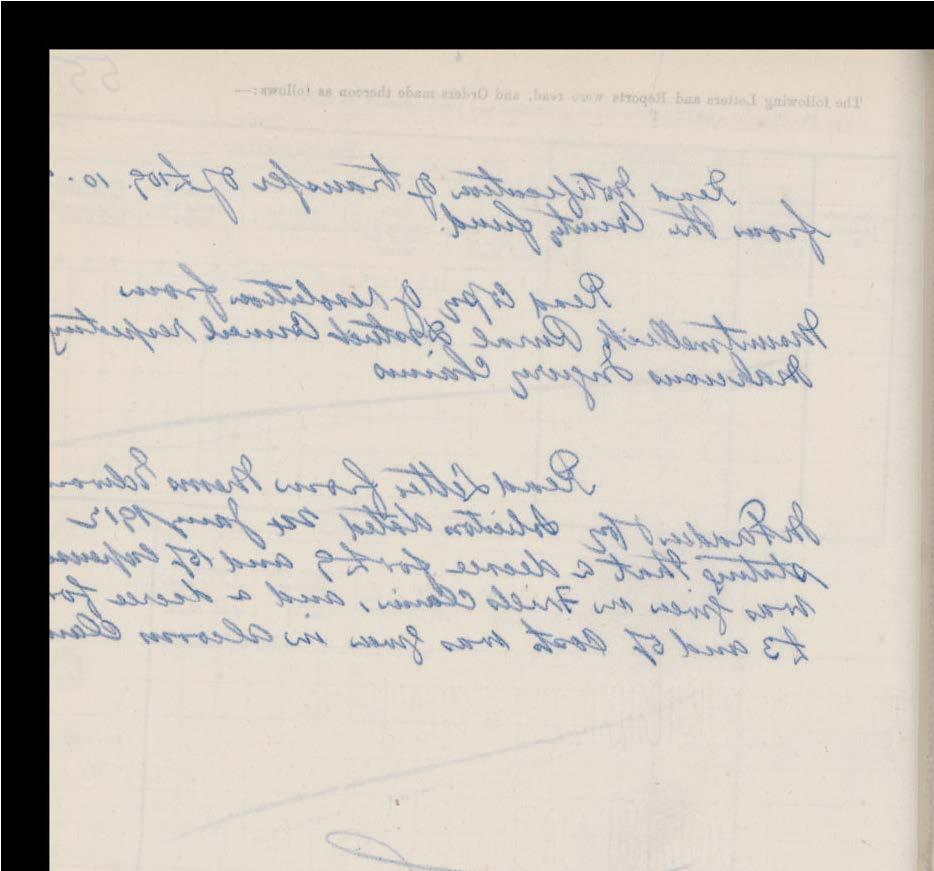 55
The following Letters and Reports were read, and Orders made thereon as follows:—
Read Notification of transfer of £109. 10.
from the County fund.
Read Copy of resolution from
Mountmellick Rural District Council respecting
Malicious Injury Claims
Read Letter from Messrs
Solicitors dated Jany 1912
stating that a decree for £9 and 15/ expenses
was given in claim, and a decree for
£3 and 5/ Costs was given in